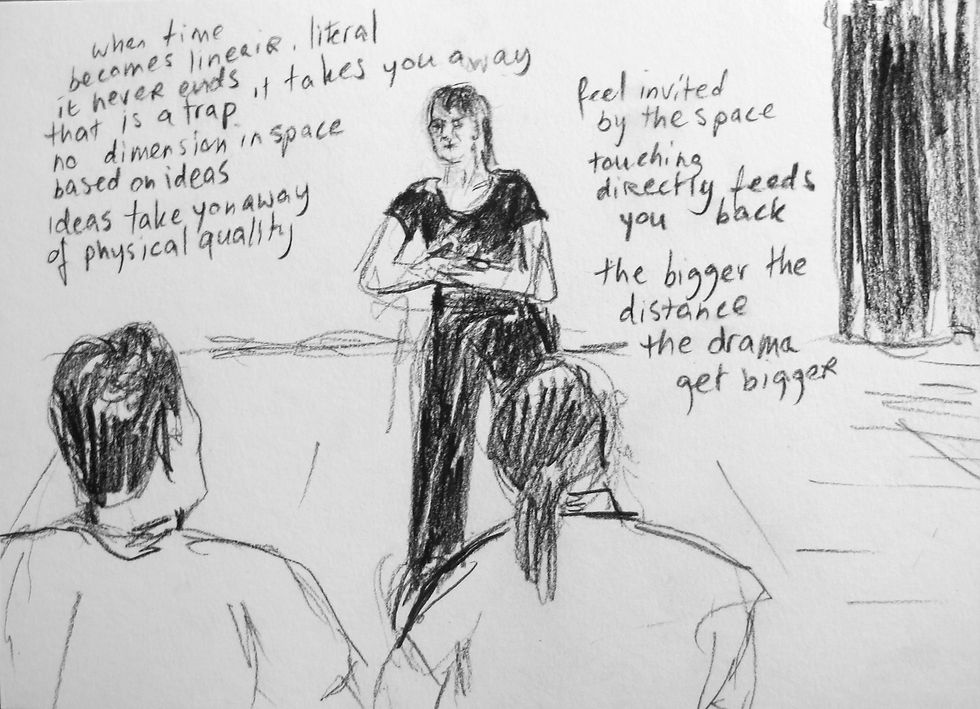 when time
becomes lineair, literal
it never ends
that is a trap. it takes you away
no dimension in space
based on ideas
ideas take you away
of physical quality
feel invited
by the space
touching
directly feeds
you back
the bigger the
distance
the drama
get bigger